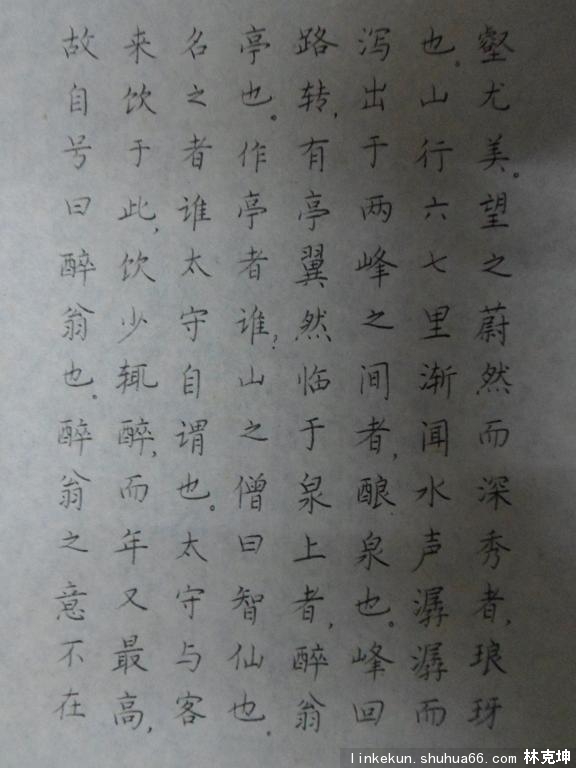 壑尤美。望之蔚然而深秀者，琅玡
也。山行六七里渐闻水声潺潺而
泻出于两峰之间者，酿泉也。峰回
路转，有亭翼然临于泉上者，醉翁
亭也。作亭者谁？山之僧曰智仙也。
名之者谁太守自谓也。太守与客
来饮于此，饮少辄醉，而年又最高，
故自号曰醉翁也。醉翁之意不在
linkekun.shuhua66.com 林克坤